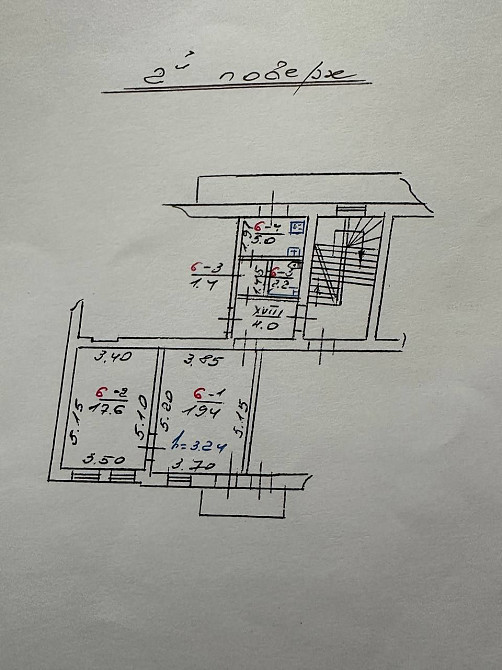 2й поверх
6-4
5.0
1.97
6-3
1.4
1.45
2.2
XVIII
4.0
3.40
3.85
6-2
17.6
6-1
19.4
5.15
5.10
5.20
5.15
h=3.24
3.50
3.70